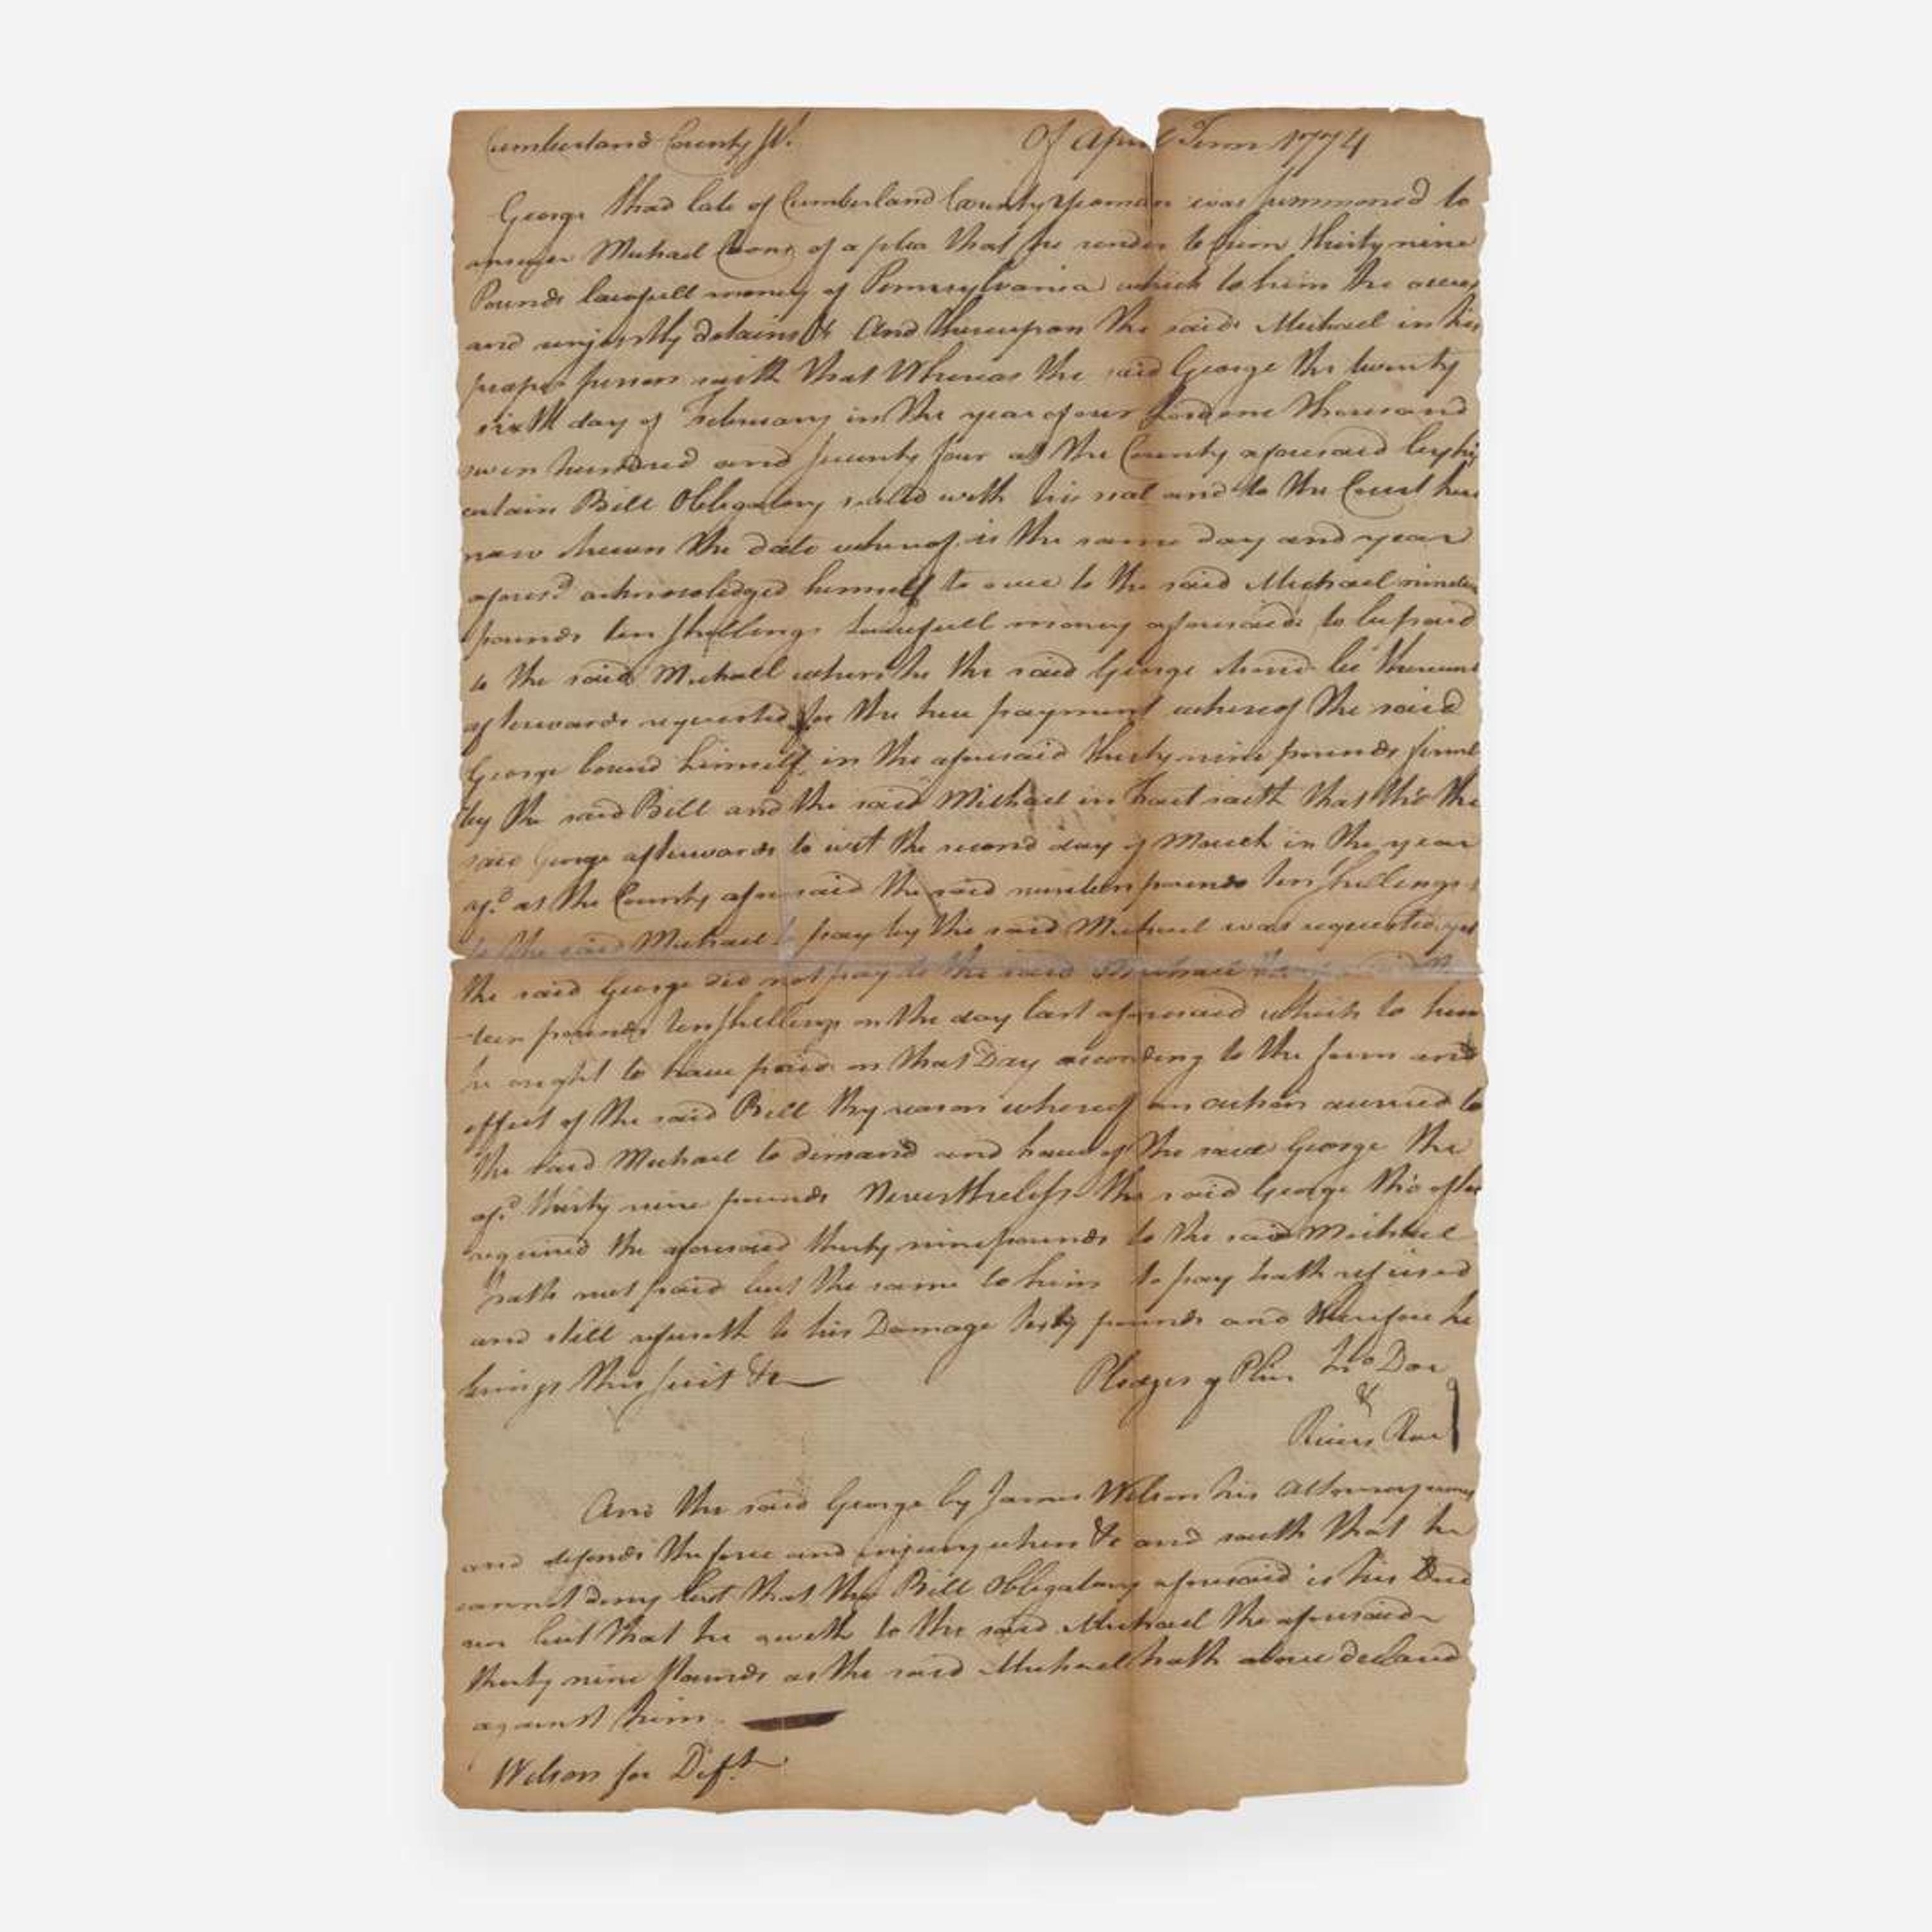 Cumberland County Ss. Of April Term 1774
George late of Cumberland County Yeoman was summoned to
answer Michael of a plea that he render to him thirty nine
Pounds lawfull money of Pennsylvania which to him he owes
and unjustly detains &c And thereupon the said Michael in his
proper person saith that Whereas the said George the twenty
sixth day of February in the year of our Lord one thousand
seven hundred and seventy four at the County aforesaid by his
certain Bill Obligatory sealed with his seal and to the Court here
now shewn the date whereof is the same day and year
afores.d acknowledged himself to owe to the said Michael nineteen
pounds ten shillings lawfull money aforesaid to be paid
to the said Michael when he the said George shoud be thereunto
afterwards requested for the true payment whereof the said
George bound himself in the aforesaid thirty nine pounds firmly
by the said Bill and the said Michael in fact saith that tho' the
said George afterwards to wit the second day of March in the year
af.d at the County aforesaid the said nineteen pounds ten shillings
to the said Michael to pay by the said Michael was requested yet
the said George did not pay to the said Michael the said
-teen pounds ten shillings on the day last aforesaid which to him
he ought to have paid on that Day according to the form and
effect of the said Bill by reason whereof an action accrued to
the said Michael to demand and have of the said George the
af.d thirty nine pounds Nevertheless the said George tho' often
required the aforesaid thirty nine pounds to the said Michael
hath not paid but the same to him to pay hath refused
and still refuseth to his Damage pounds and therefore he
brings this suit &c Pledges Jno Doe
&
Richd Roe
And the said George by James Wilson his Attorney comes
and defends the force and injury when &c and saith that he
cannot deny but that the Bill Obligatory aforesaid is his Deed
nor but that he oweth to the said Michael the aforesaid
thirty nine Pounds as the said Michael hath above declared
against him.
Wilson for Deft.